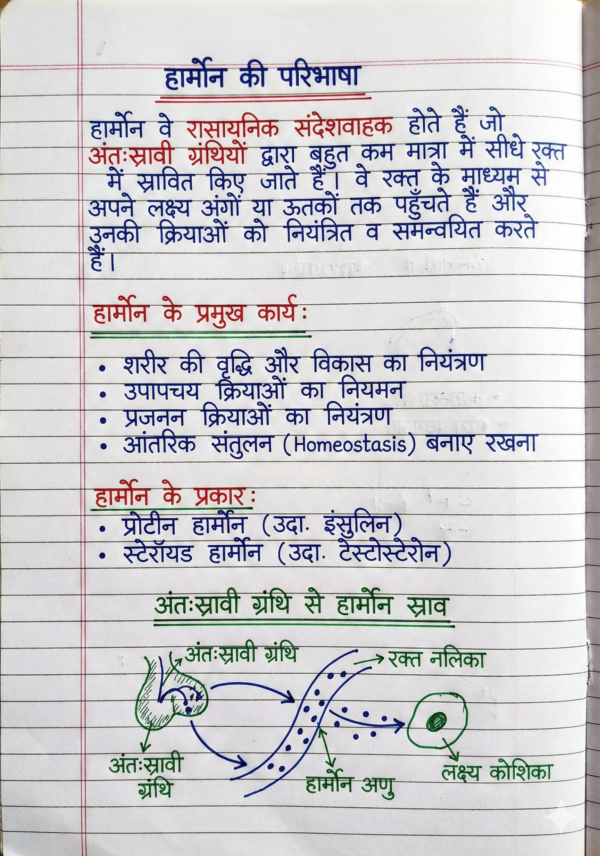 हार्मोन की परिभाषा
हार्मोन वे रासायनिक संदेशवाहक होते हैं जो
अंतःस्रावी ग्रंथियों द्वारा बहुत कम मात्रा में सीधे रक्त
में स्रावित किए जाते हैं। वे रक्त के माध्यम से
अपने लक्ष्य अंगों या ऊतकों तक पहुँचते हैं और
उनकी क्रियाओं को नियंत्रित व समन्वयित करते
हैं।
हार्मोन के प्रमुख कार्य:
• शरीर की वृद्धि और विकास का नियंत्रण
• उपापचय क्रियाओं का नियमन
• प्रजनन क्रियाओं का नियंत्रण
• आंतरिक संतुलन (Homeostasis) बनाए रखना
हार्मोन के प्रकार:
• प्रोटीन हार्मोन (उदा. इंसुलिन)
• स्टेरॉयड हार्मोन (उदा. टेस्टोस्टेरोन)
अंतःस्रावी ग्रंथि से हार्मोन स्राव
अंतःस्रावी ग्रंथि
रक्त नलिका
अंतःस्रावी
ग्रंथि
हार्मोन अणु
लक्ष्य कोशिका